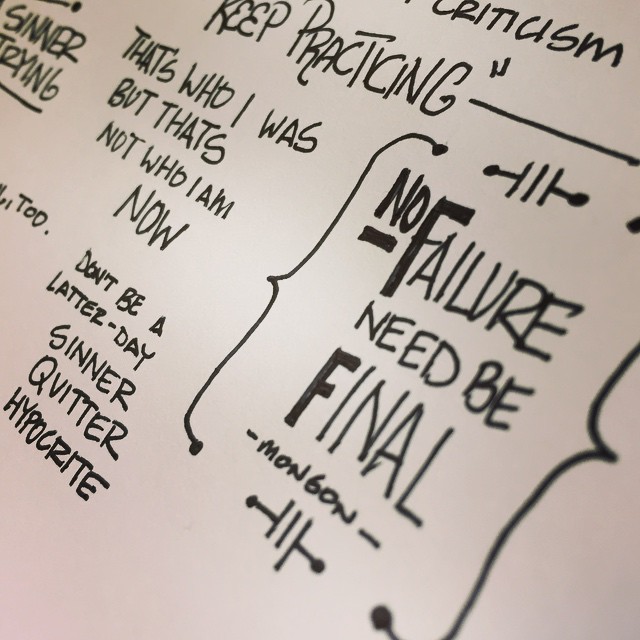 SINNER
TRYING
TOO.
CRITICISM
KEEP PRACTICING"
THATS WHO I WAS
BUT THATS
NOT WHO I AM
NOW
DON'T BE A
LATTER-DAY
SINNER
QUITTER
HYPOCRITE
NO FAILURE
NEED BE
FINAL
-MONSON-